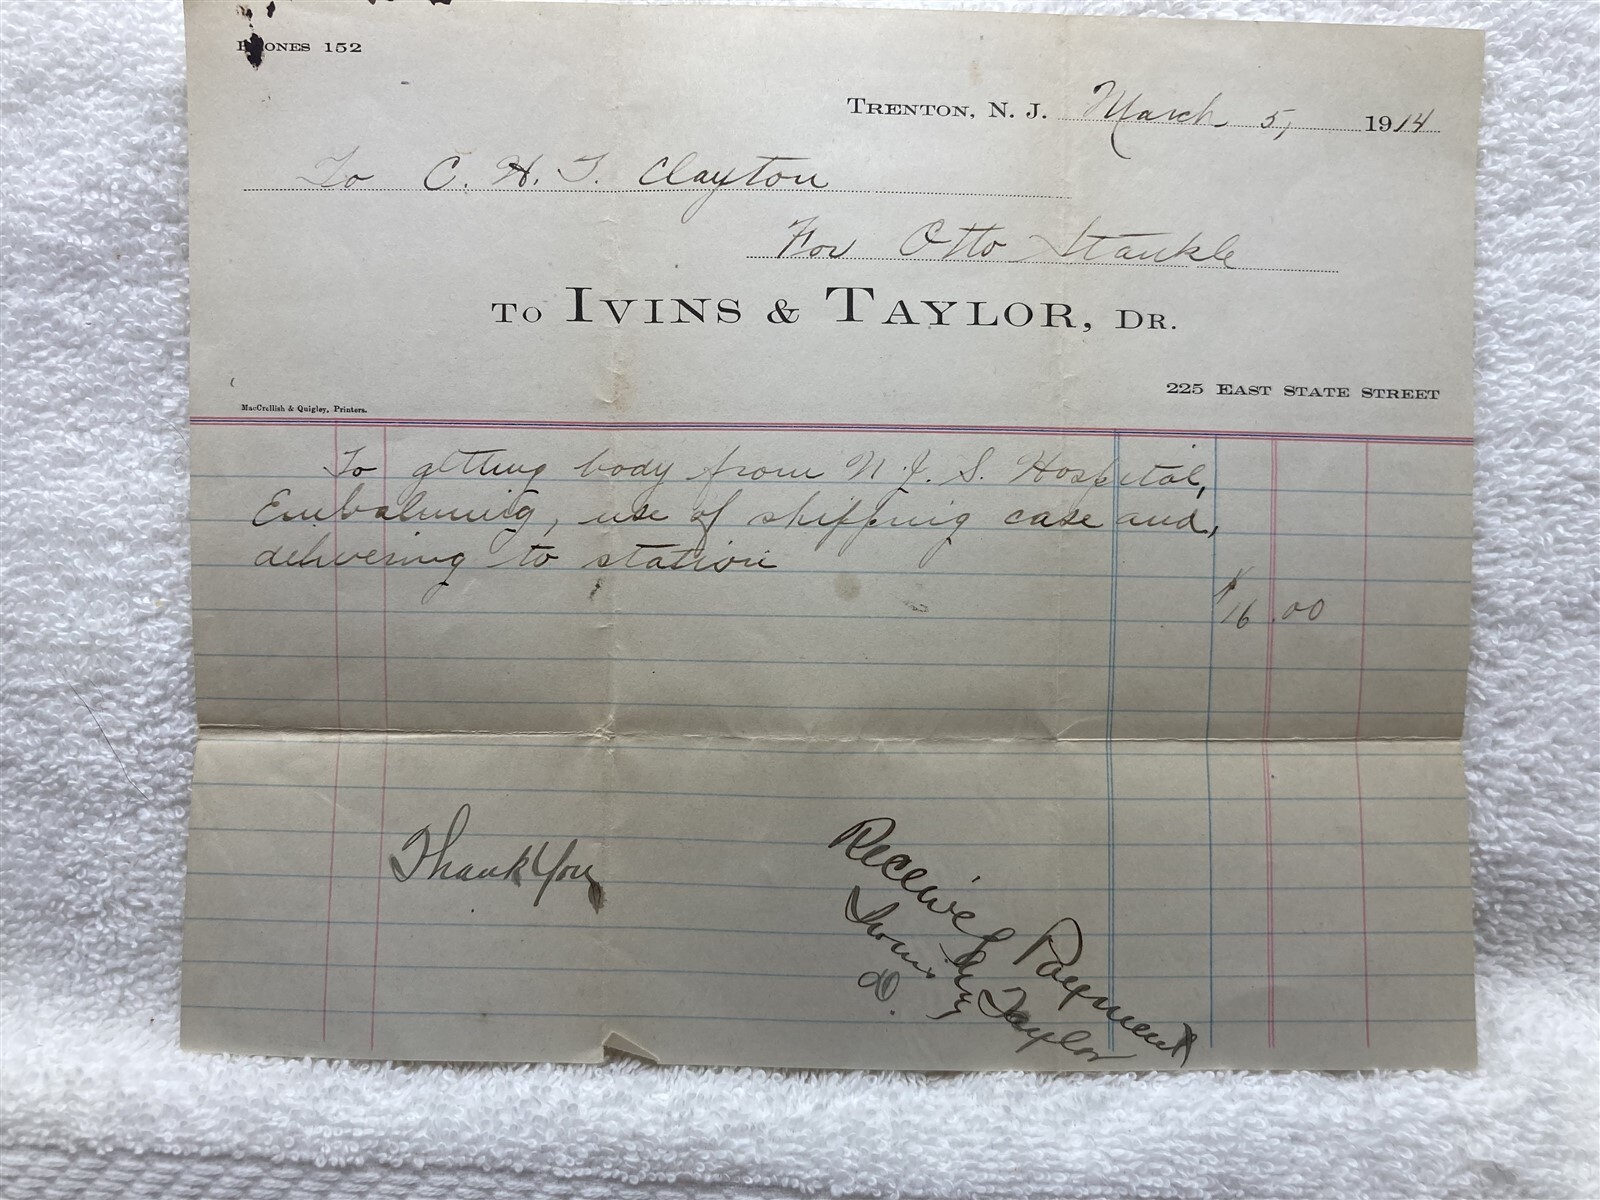 PHONES 152
TRENTON, N. J. March 5, 1914
To C. H. T. Clayton
For Otto Stankle
TO IVINS & TAYLOR, DR.
225 EAST STATE STREET
MacCrellish & Quigley, Printers.
To getting body from N. J. S. Hospital,
Embalming, use of shipping case and,
delivering to station
$16.00
Thank You
Received Payment
Ivins & Taylor